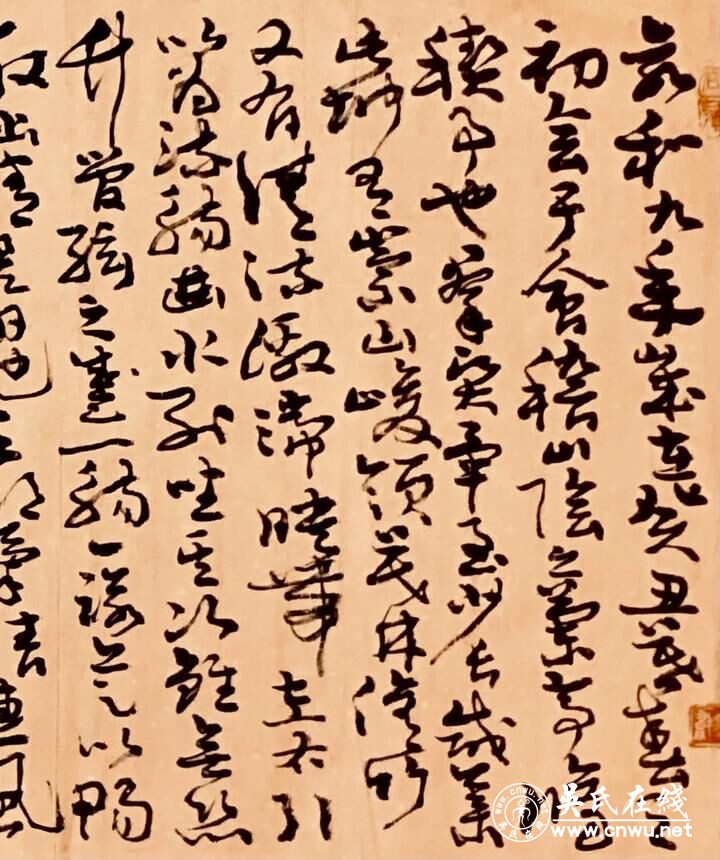 永和九年歲在癸丑暮春之
初會于會稽山陰之蘭亭脩
禊事也羣賢畢至少長咸集
此地有崇山峻領茂林脩竹
又有清流激湍映帶左右引
以為流觴曲水列坐其次雖無絲
竹管絃之盛一觴一詠亦足以暢
叙幽情是日也天朗氣清惠風
吳氏在線
www.cnwu.net